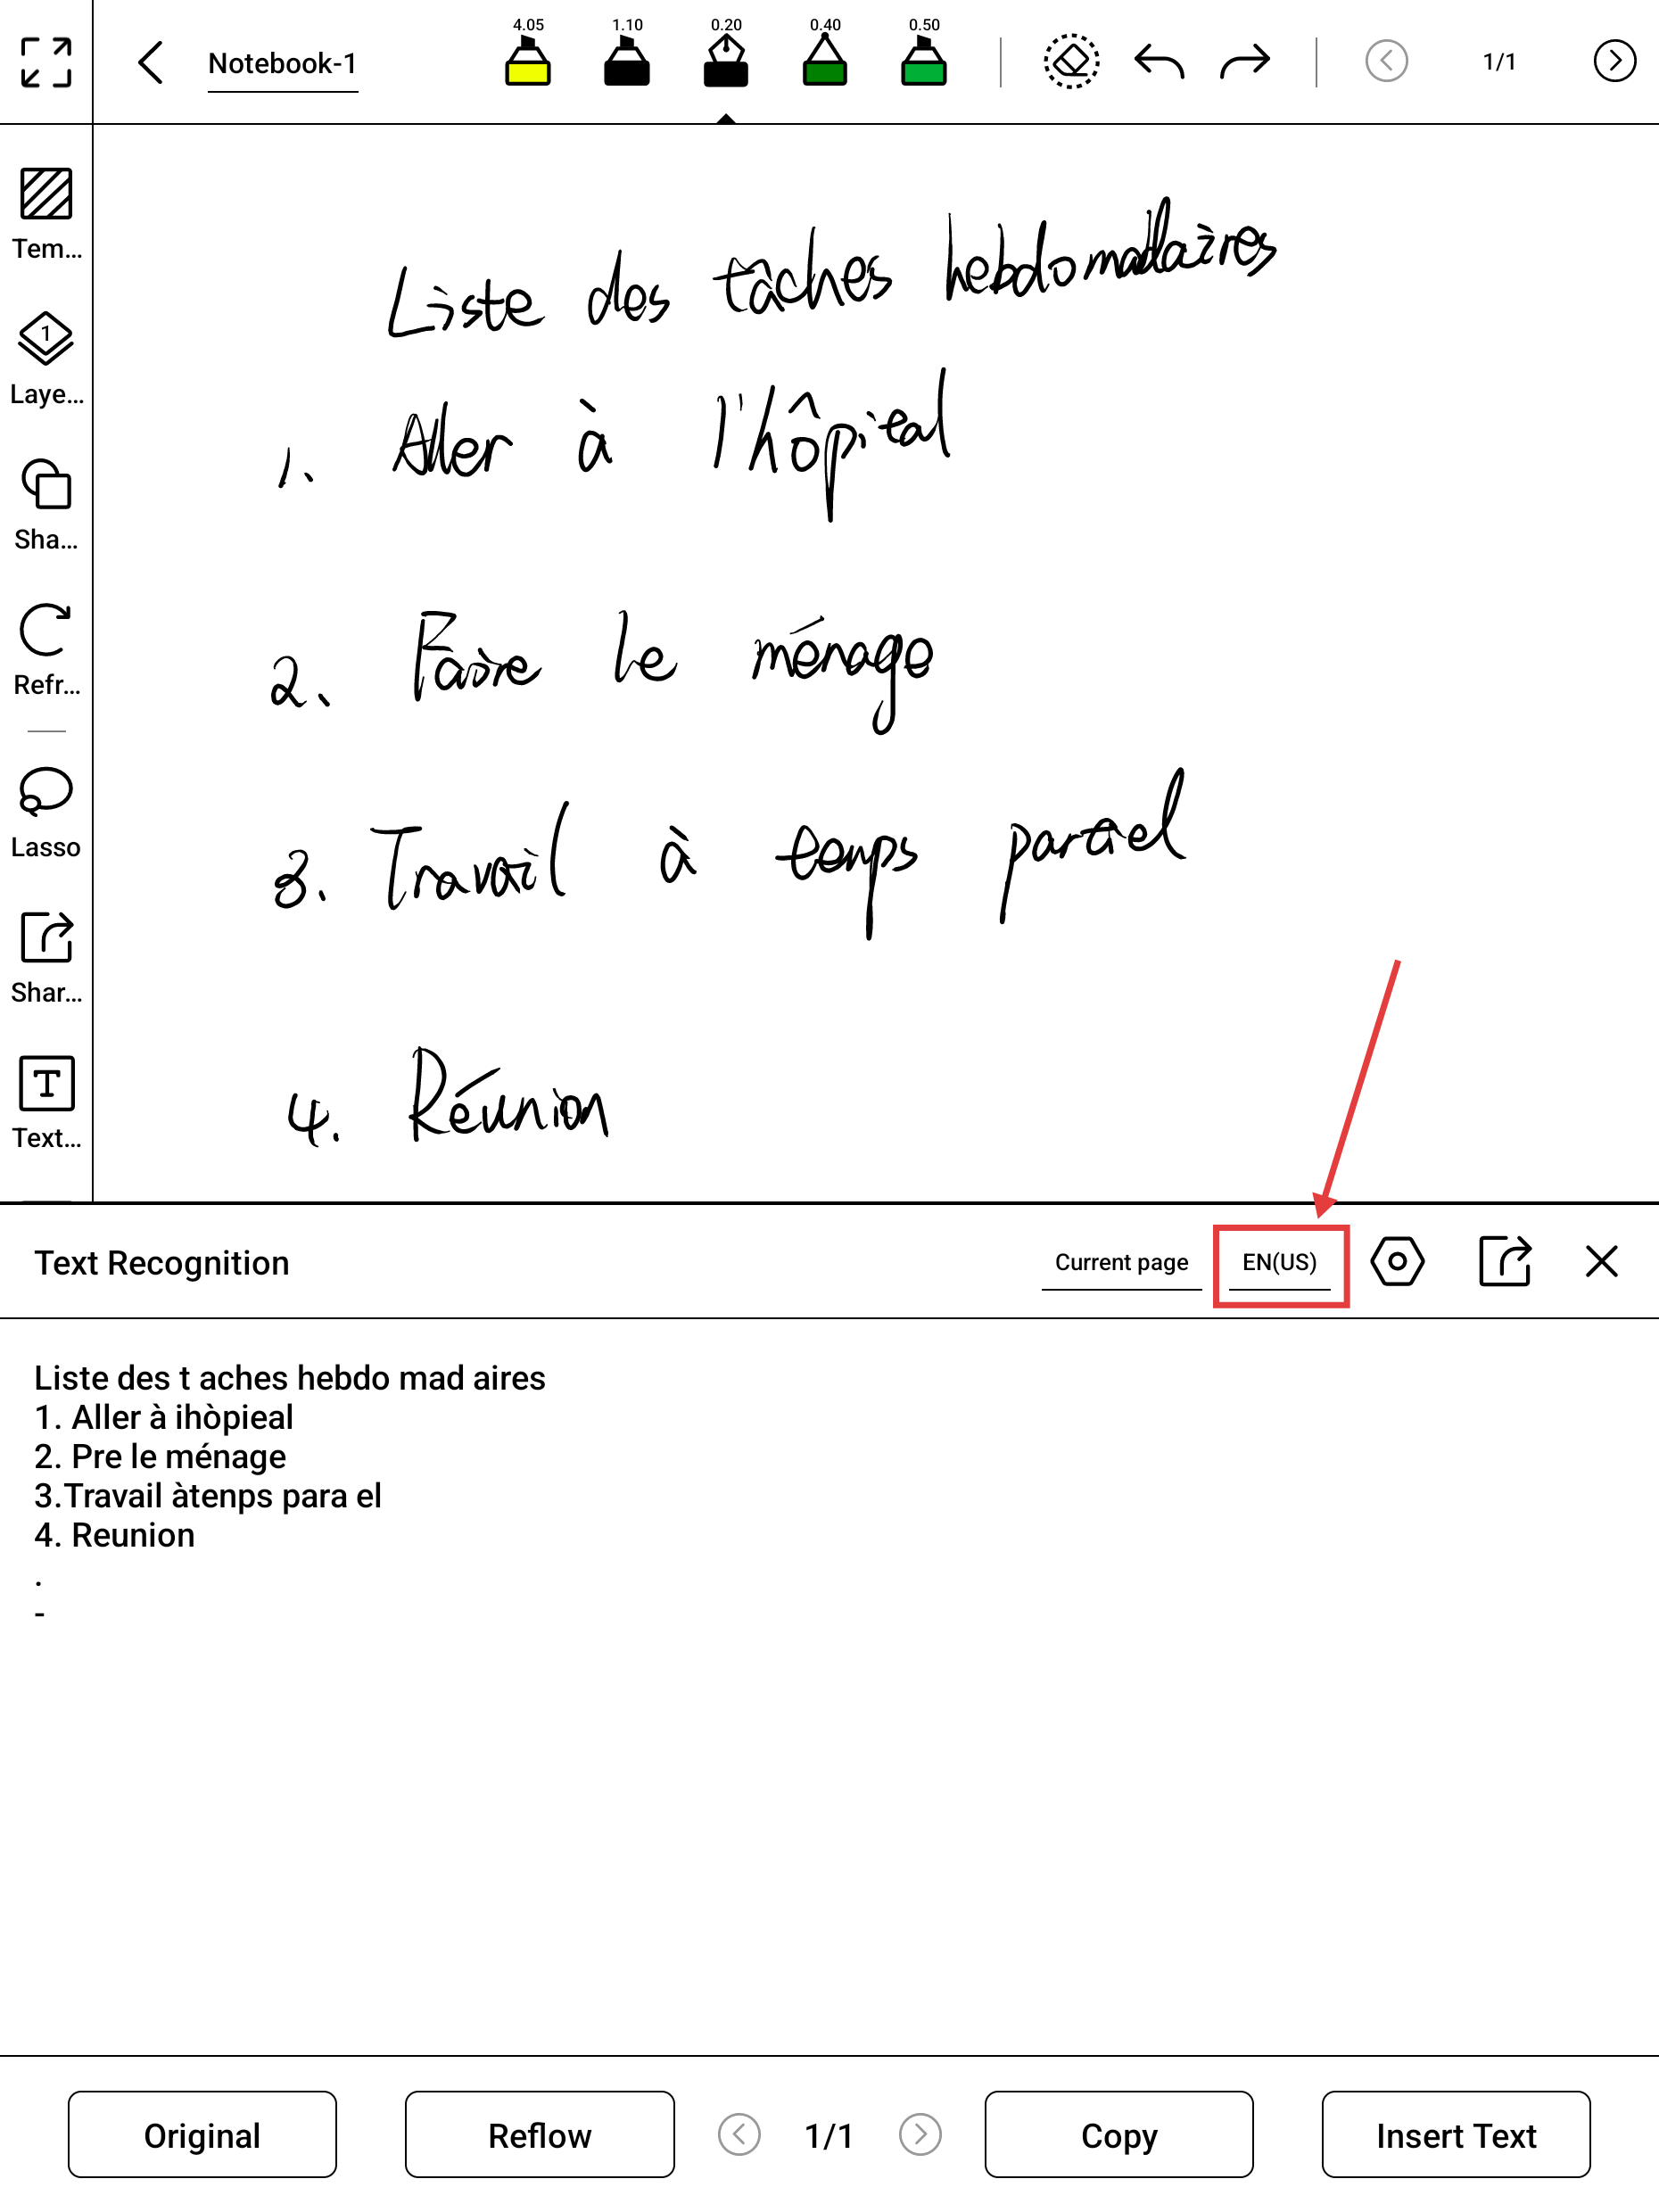 4.05 1.10 0.20 0.40 0.50
Notebook-1
1/1
Tem...
1
Laye...
Sha...
Refr...
Lasso
Shar...
T
Text...
Liste des tâches hebdomadaires
1. Aller à l'hôpital
2. Faire le ménage
3. Travail à temps partiel
4. Réunion
Text Recognition
Current page
EN(US)
Liste des t aches hebdo mad aires
1. Aller à ihòpieal
2. Pre le ménage
3.Travail àtenps para el
4. Reunion
.
-
Original
Reflow
1/1
Copy
Insert Text